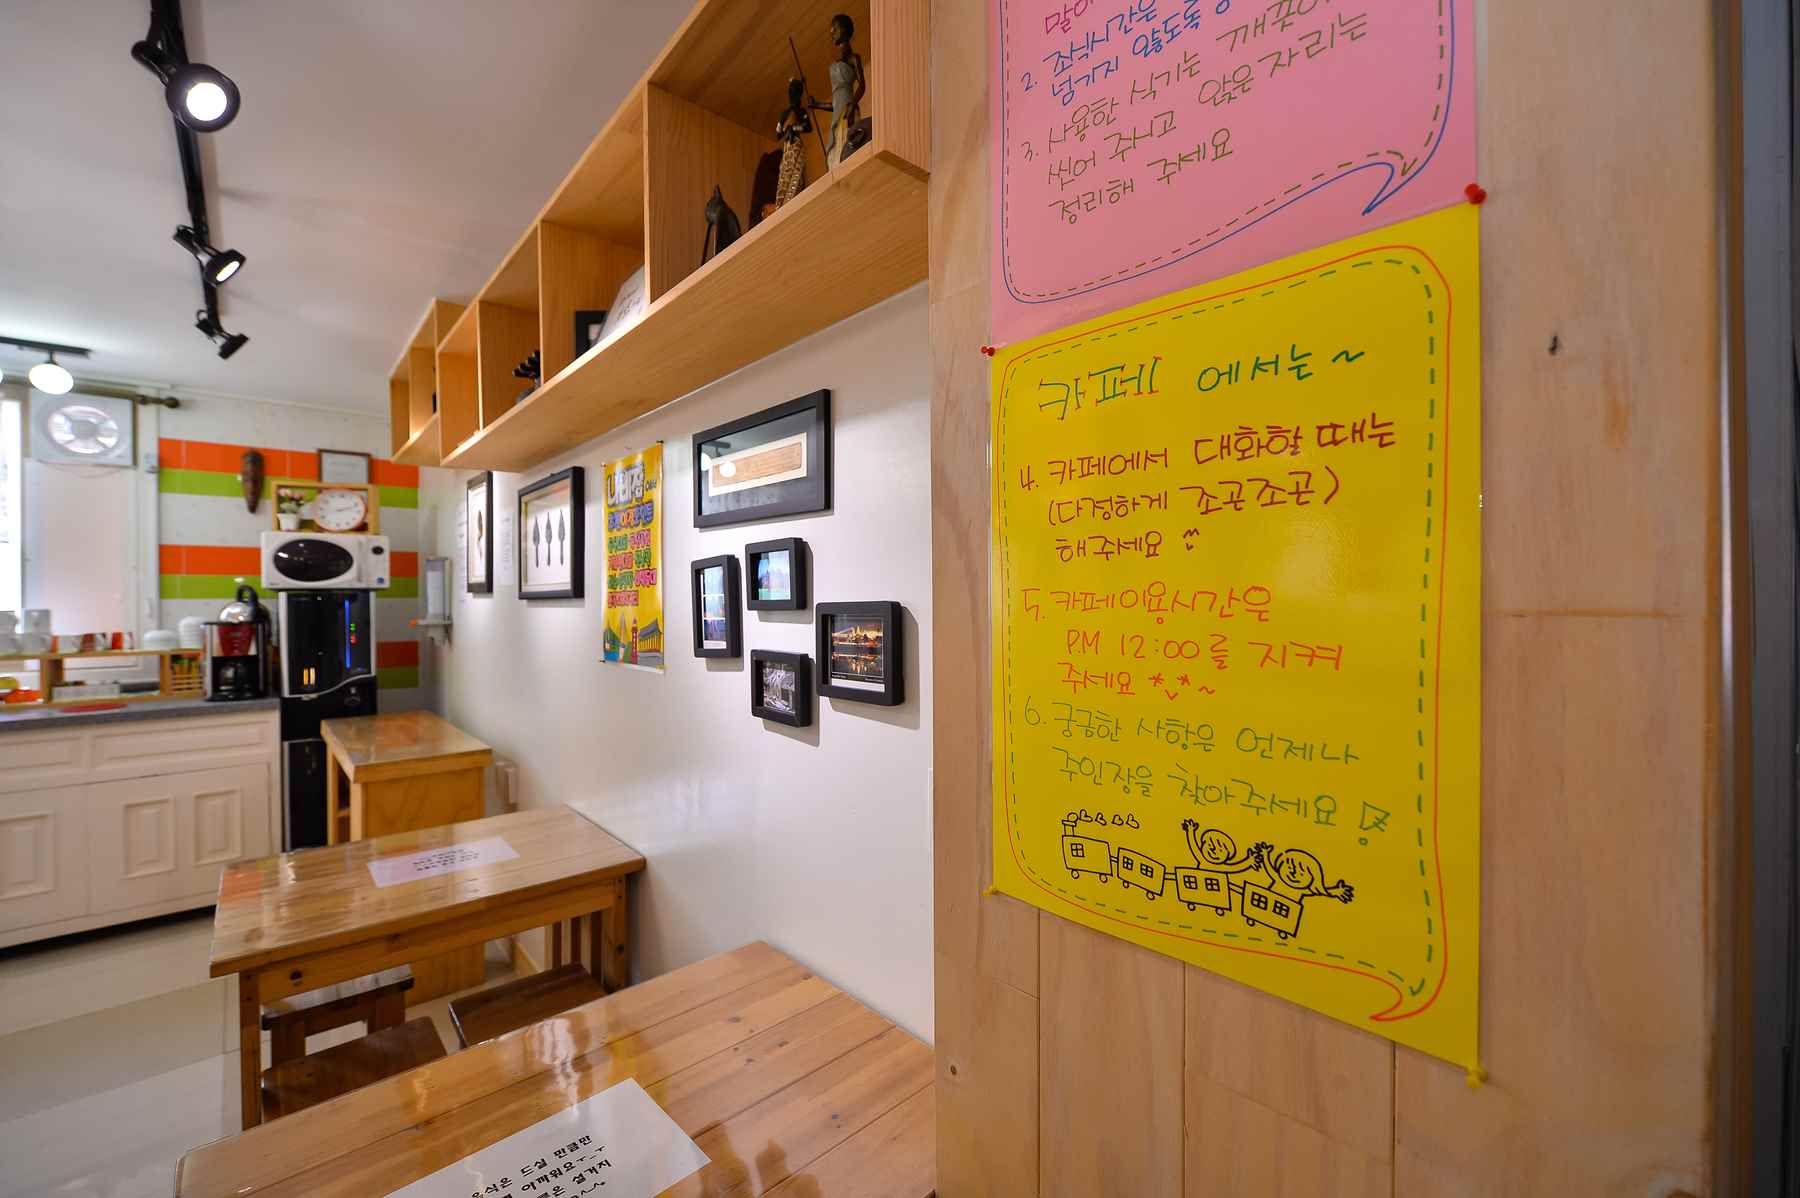 2. 조식시간은
넘기지 않도록
3. 사용한 식기는 깨끗이
씻어 주시고 앉은 자리는
정리해 주세요
카페에서는~
4. 카페에서 대화할 때는
(다정하게 조곤조곤)
해주세요 ^^
5. 카페이용시간은
P.M 12:00를 지켜
주세요 *^*~
6. 궁금한 사항은 언제나
주인장을 찾아주세요!
나비잠
음식은 드실 만큼만
아까워요ㅜ_ㅜ
설거지